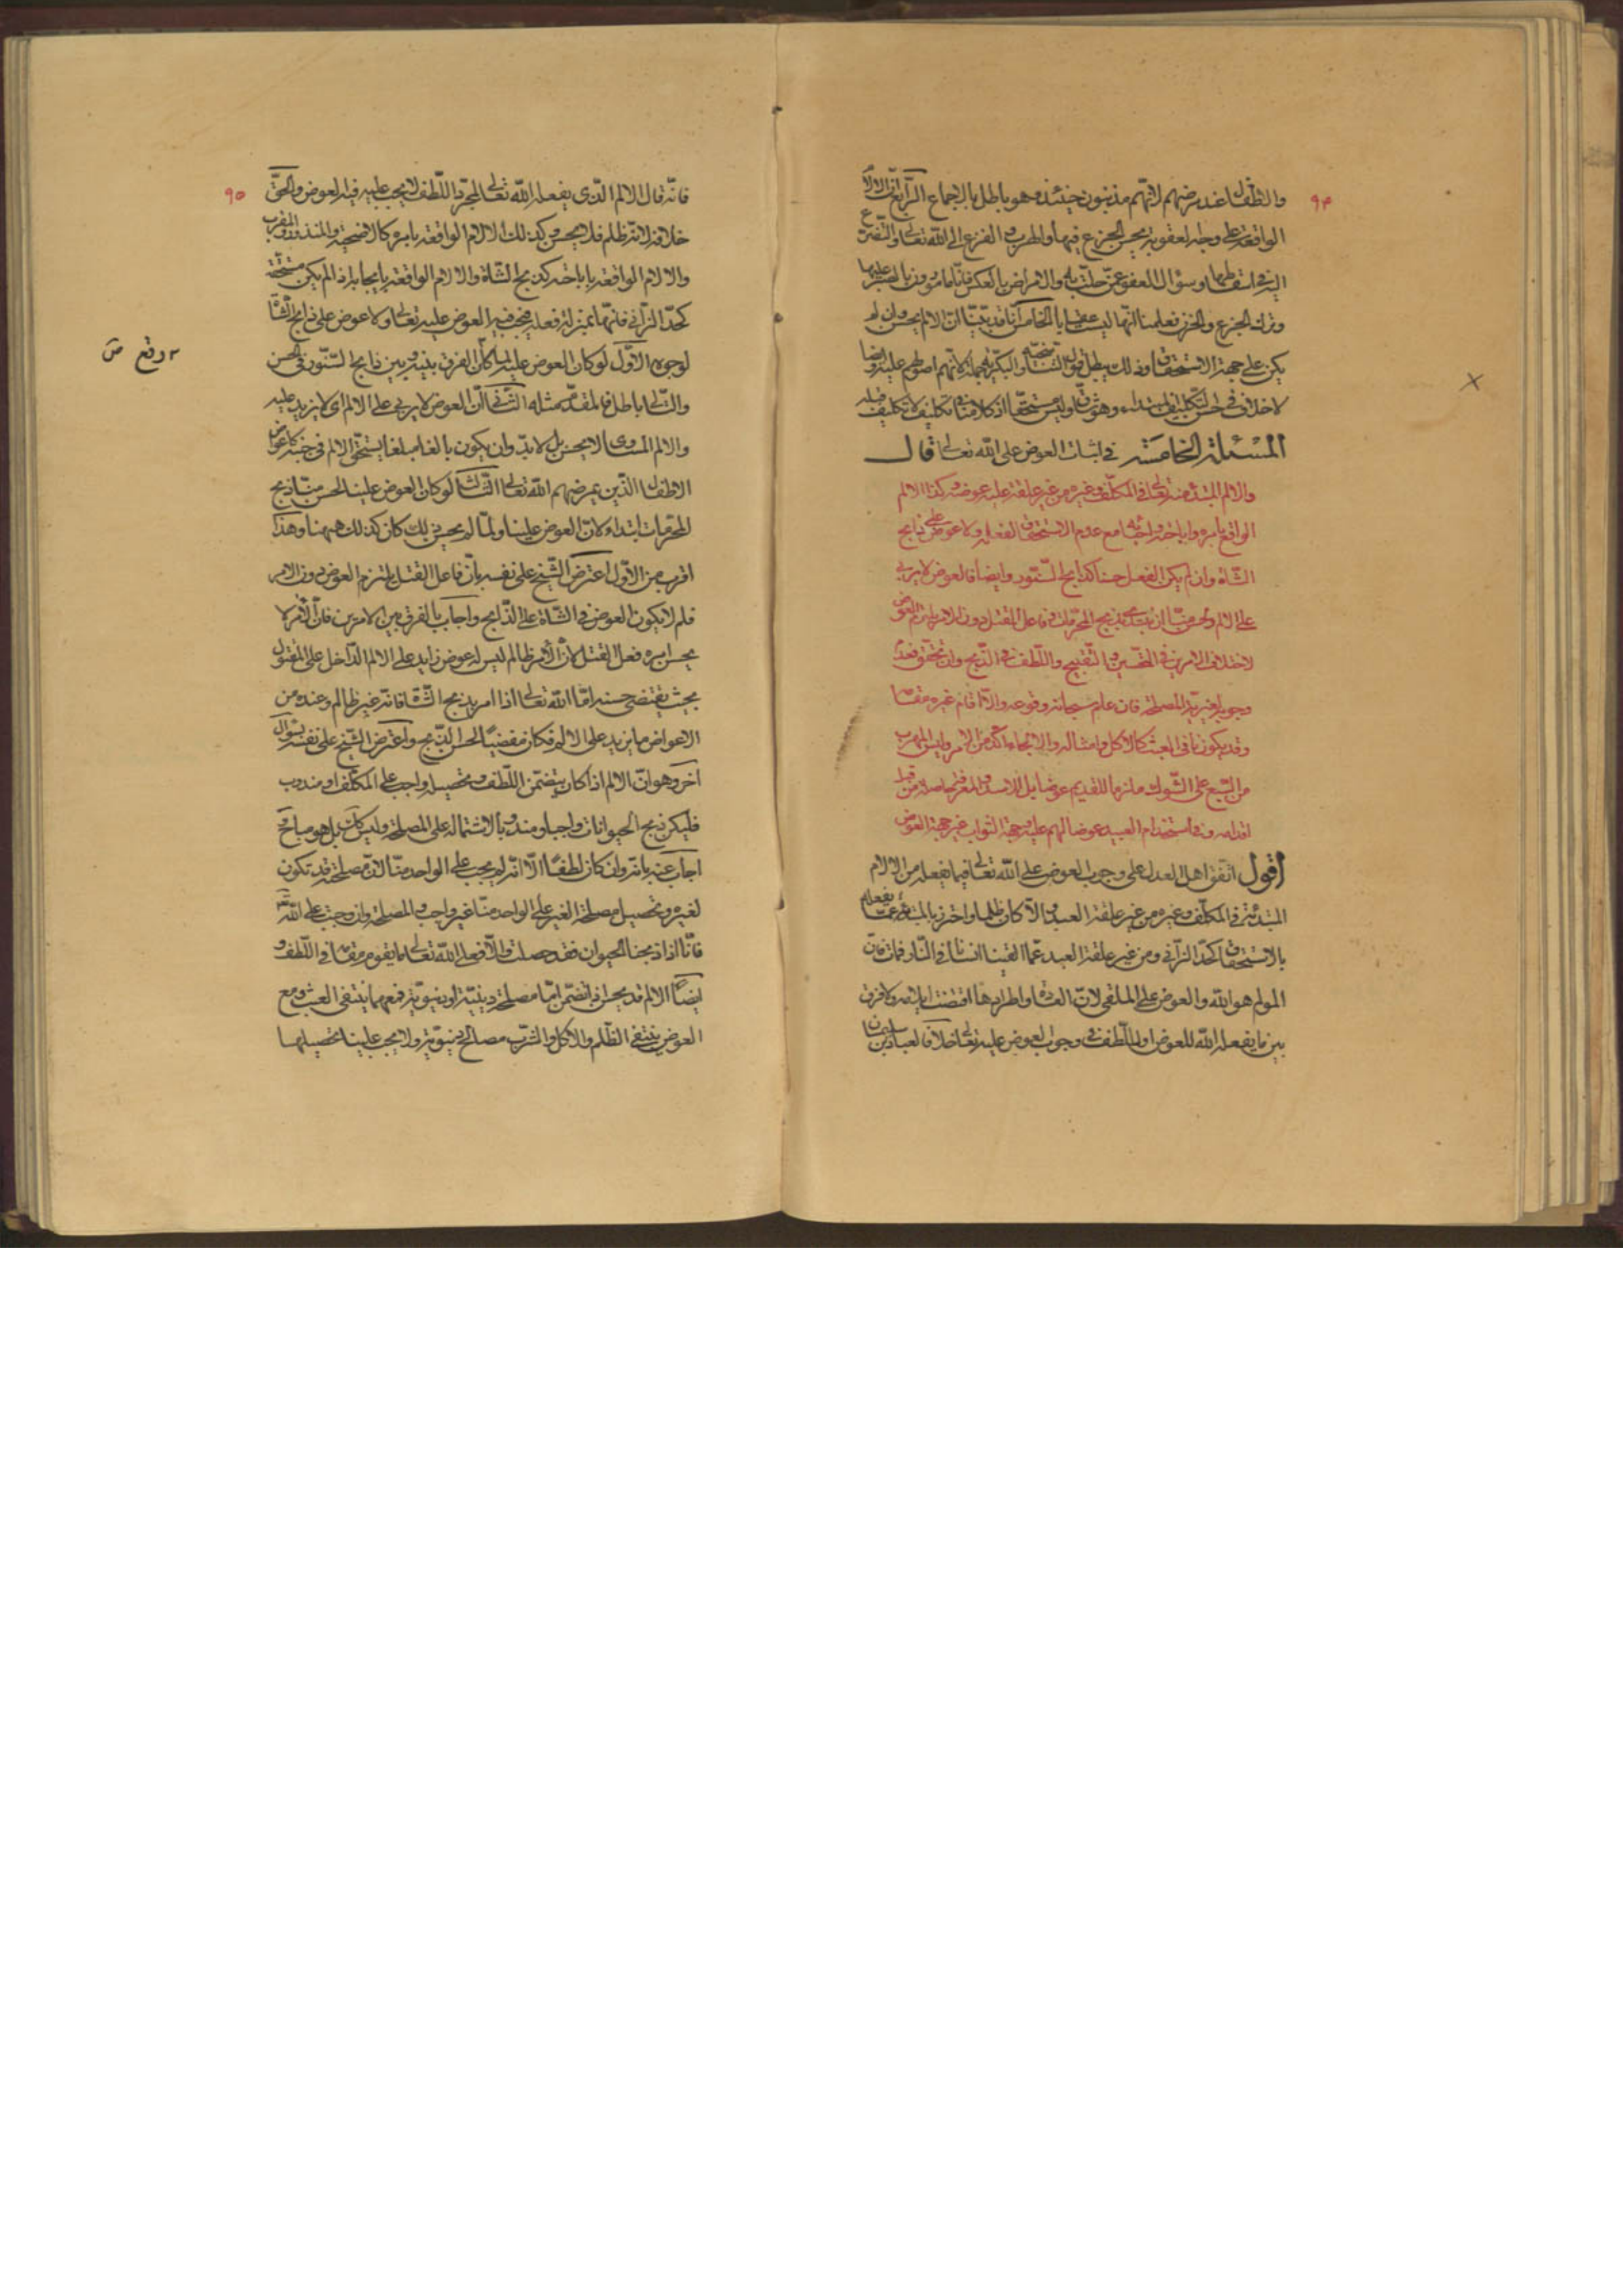 ٩٤
والاطفال عند مرضهم لانهم مذنبون حينئذ وهو باطل بالاجماع الرابع ان الالام
الواقعة على وجه العقوبة يحسن الجزع فيها والهرب و الفزع الى الله تعالى والتضرع
اليه في اسقاطها وسؤال العفو عمن حلت به والامراض بالعكس فانا مامورون بالصبر عليها
وترك الجزع والحزن فعلمنا انها ليست عقابا الخامس انا قد بينا ان الالم يحسن وان لم
يكن على جهة الاستحقاق وذلك يبطل قول التناسخية والبكرية جملة لانهم اصولهم عليه وايضا
لا خلاف في حسن التكليف المبتداء وهو شاق وليس مستحقا اذ كلامنا في تكليف لا تكليف قبله
المسئلة الخامسة في اثبات العوض على الله تعالى قال
والالم المبتدء منه تعالى في المكلف وغيره من غير علقة عليه عوضه وكذا الالم
الواقع بامره واباحته والجائه مع عدم الاستحقاق لفعله ولا عوض على ذابح
الشاة وان لم يكن الفعل حسنا كذابح السنور وايضا فالعوض لا يربى
على الالم ولحسن منا ان نبتدء بذبح المحرمات وفاعل القتل دون الامر يلزم العوض
لاختلاف الامرين في التحسين والتقبيح واللطف في الذبح وان تحقق فقد
وجوبه لغيرية المصلحة فان علم سبحانه وقوعه والا اقام غيره مقامه
وقد يكون نافي العبث كالاكل وامثاله والالجاء اكد من الامر وليس الهرب
من السبع على الشوك ملزما للقديم عوضا بل للاسد والمعرفة حاصلة من قبل
اقدامه وفي استخدام العبيد عوضا لهم عليه وجهة الثواب غير جهة العوض
اقول اتفق اهل العدل على وجوب العوض على الله تعالى فيما يفعله من الالام
المبتدئة في المكلف وغيره من غير علقة العبد والا كان ظلما واحترز بالمبتدئة عما يفعله
بالاستحقاق كحد الزاني ومن غير علقة العبد عما القينا انسانا في النار فمات فان
المولم هو الله والعوض على الملقي لان العادة واطرادها اقتضت ايلامه ولا فرق
بين ما يفعله الله للعوض او للطف في وجوب العوض عليه تعالى خلافا لعباد بن سليمان
٩٥
فانه قال الالم الذي يفعله الله تعالى لمجرد اللطف لا يجب عليه فيه العوض والحق
خلافه لانه ظلم فلا يحسن وكذلك الالام الواقعة بامره كالاضحية والمنذور والقرب
والالام الواقعة باباحته كذبح الشاة والالام الواقعة بايجابه اذا لم يكن مستحقة
كحد الزاني فانها بمنزلة فعله فيجب فيه العوض عليه تعالى ولا عوض على ذابح الشاة
لوجوه الاول لو كان العوض عليه لما كان الفرق بينه وبين ذابح السنور في الحسن
والتالي باطل فالمقدم مثله الثاني ان العوض لا يربى على الالم اي لا يزيد عليه
والالم المساوي لا يحسن بل لا بد وان يكون بالغا مبلغا يستحق الالم في جنبه كاعواض
الاطفال الذين يمرضهم الله تعالى الثالث لو كان العوض علينا لحسن منا ذبح
المحرمات ابتداء لان العوض علينا ولما لم يحسن ذلك كان كذلك ههنا وهذا
اقرب من الاول اعترض الشيخ على نفسه بان فاعل القتل يلتزم العوض دون الامر
فلم لا يكون العوض في الشاة على الذابح واجاب بالفرق بين الامرين فان الامر لا
يحسن امره فعل القتل لان الامر ظالم ليس له عوض زايد على الالم الداخل على المقتول
بحيث يقتضي حسنه اما الله تعالى اذا امر بذبح الشاة فانه غير ظالم وعنده من
الاعواض ما يزيد على الالم فكان مفضيا لحسن الذبح واعترض الشيخ على نفسه بسؤال
اخر وهو ان الالم اذا كان يتضمن اللطف وتحصيله واجب على المكلف او مندوب
فليكن ذبح الحيوانات واجبا او مندوبا لاشتماله على المصلحة وليس كذلك بل هو مباح و
اجاب عنه بانه وان كان لطفا الا انه لم يجب على الواحد منا لان مصلحته قد تكون
لغيره وتحصيل مصلحة الغير على الواحد منا غير واجب والمصلحة وان وجبت على الله تعالى
فانا اذا ذبحنا الحيوان فقد حصلت والا فعل الله تعالى ما يقوم مقامه في اللطف و
ايضا الالم قد يحسن اذا تضمن اما مصلحة دينية او دنيوية فمعهما ينتفي العبث ومع
العوض ينتفي الظلم والاكل والشرب مصالح دنيوية ولا يجب علينا تحصيلها